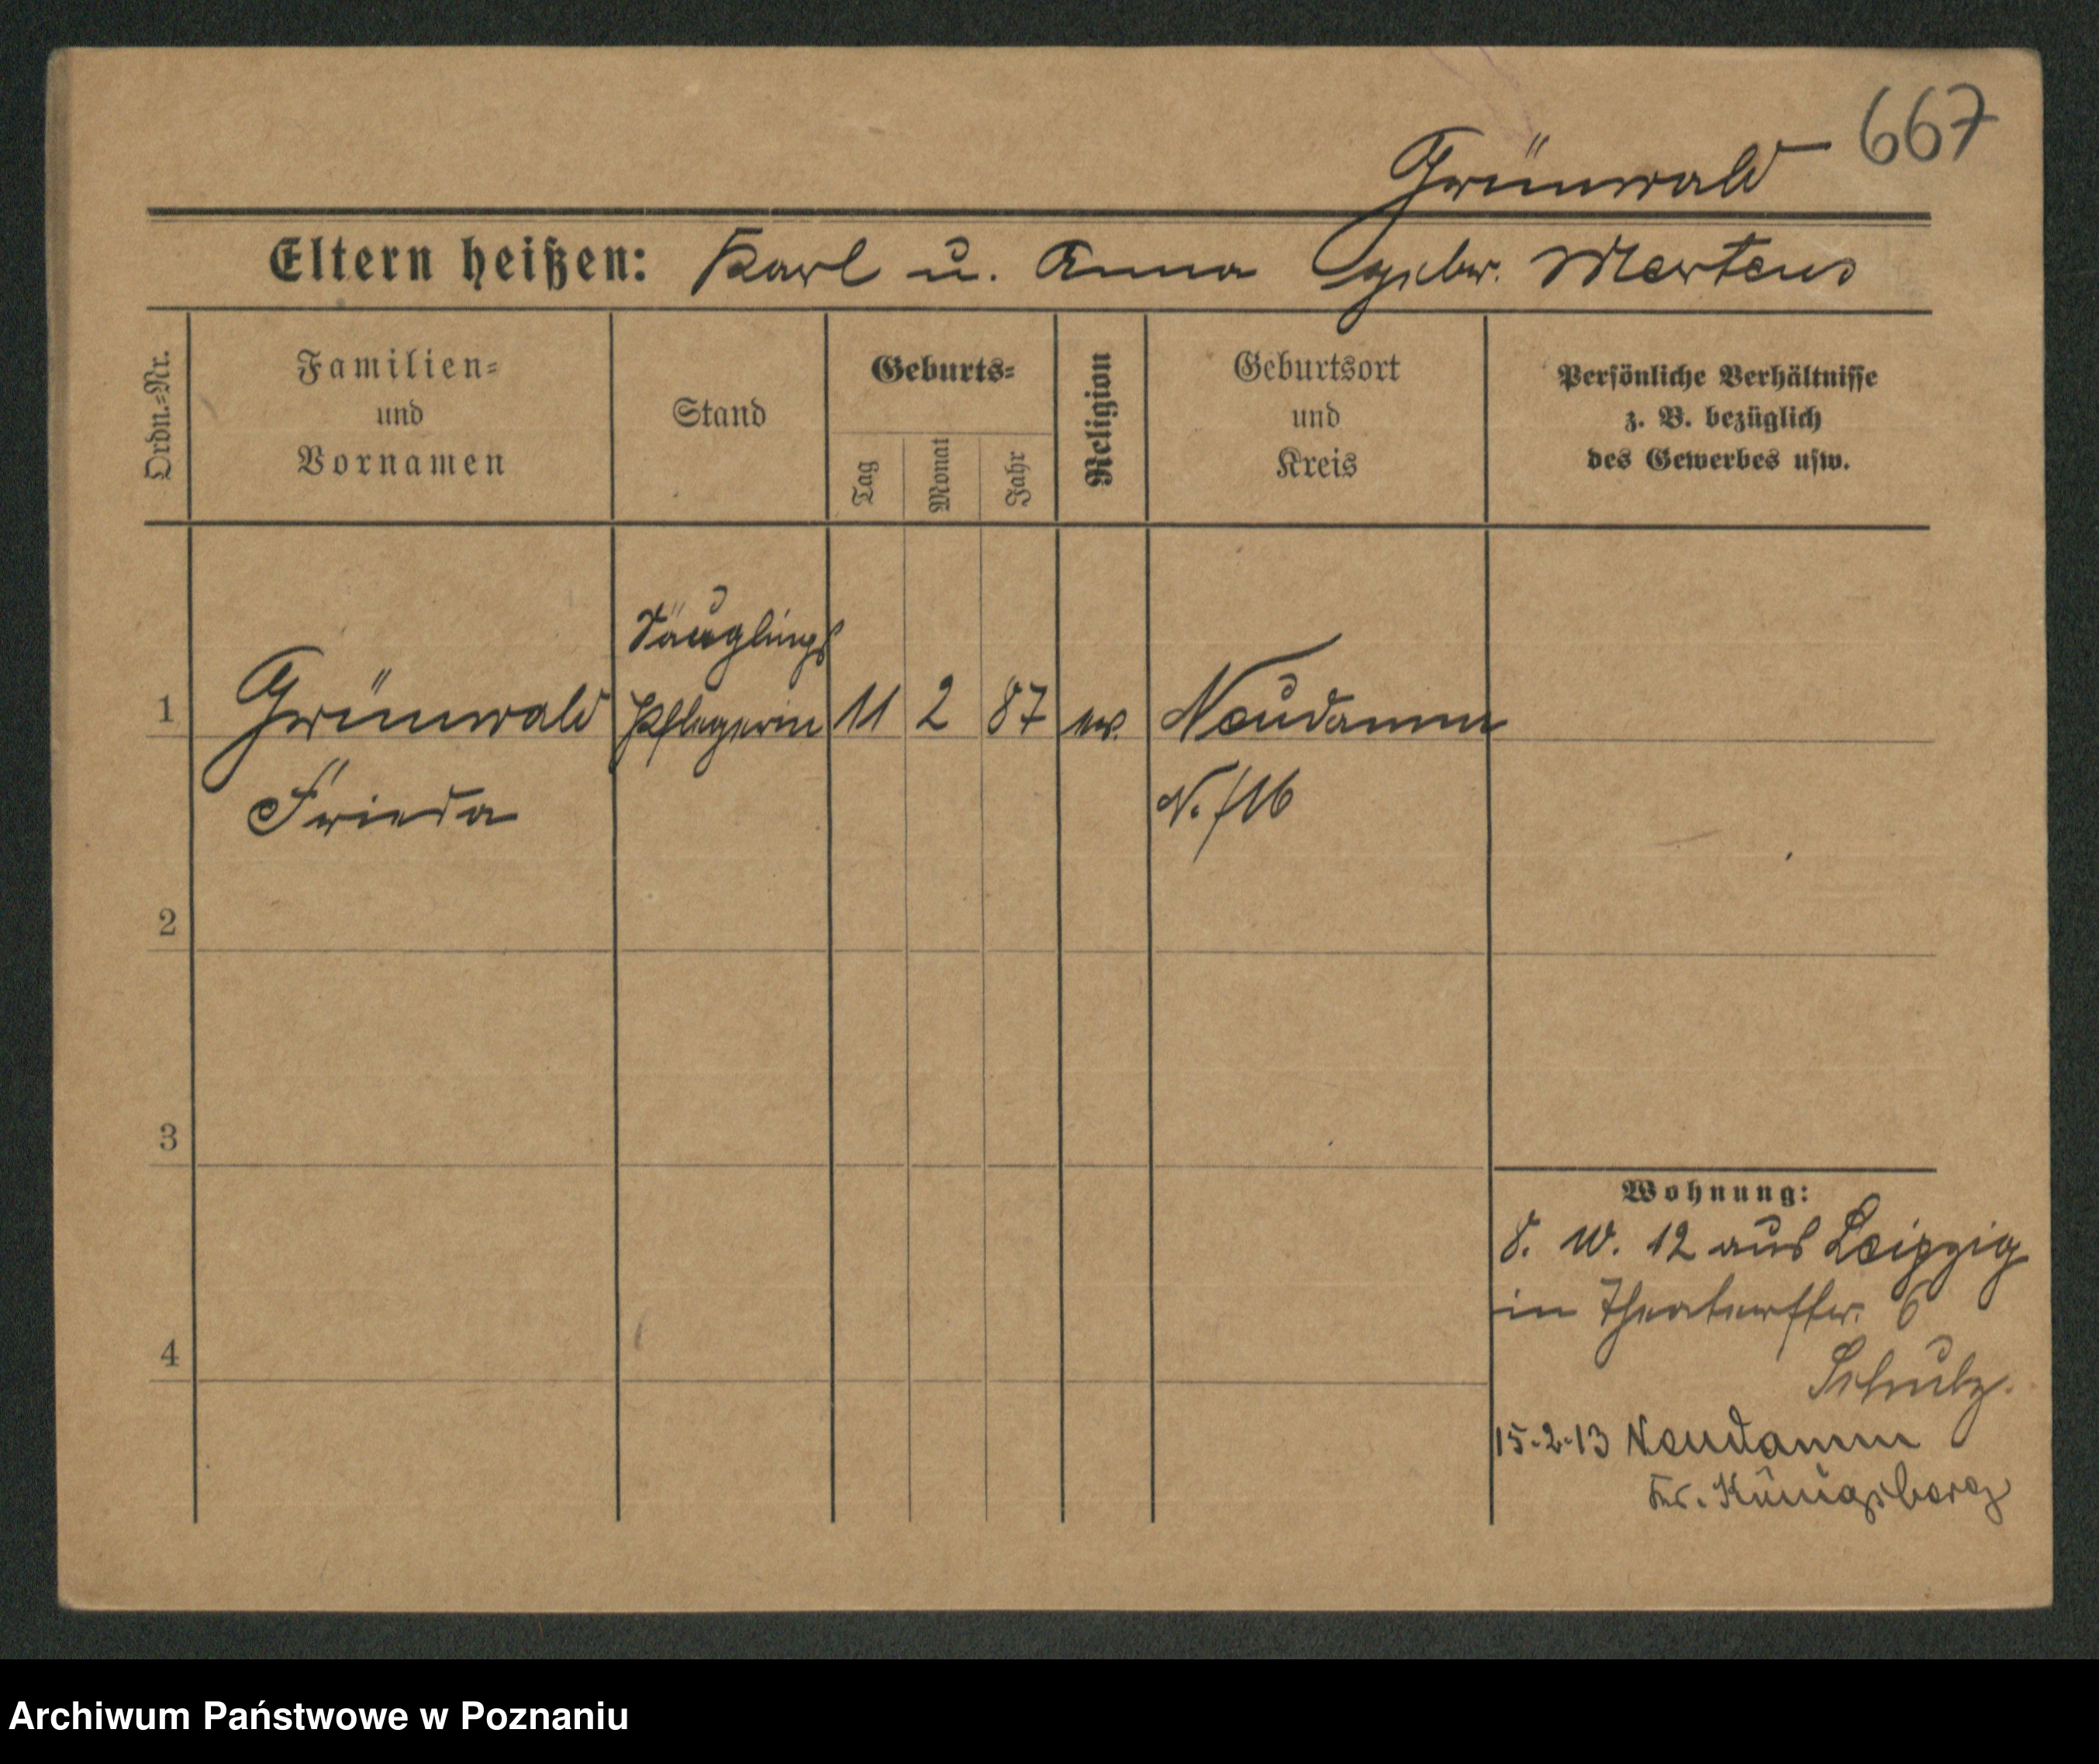 667
Grünwald
Eltern heißen: Karl u. Anna gebor. Mertens
Ordn.=Nr.
Familien=
und
Vornamen
Stand
Geburts=
Tag
Monat
Jahr
Religion
Geburtsort
und
Kreis
Persönliche Verhältnisse
z. B. bezüglich
des Gewerbes usw.
Säuglings
1 Grünwald Pflegerin 11 2 87 ev. Neudamm
Frieda
2
3
4
Wohnung:
12 aus Leipzig
in Theaterstr. 6
Schulz
15-2-13 Neudamm
Kr. Königsberg
Archiwum Państwowe w Poznaniu